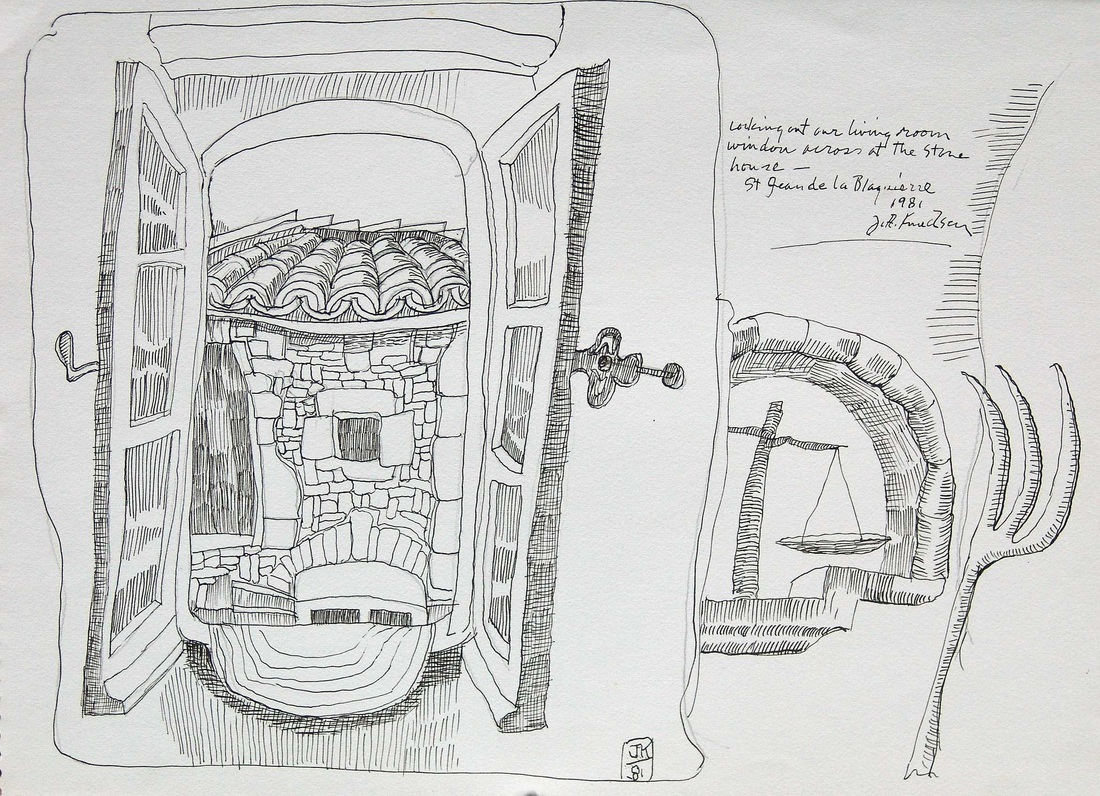 Looking out our living room
window across at the stone
house —
St Jean de la Blaquière
1981
J.R. Knudson
JK
81